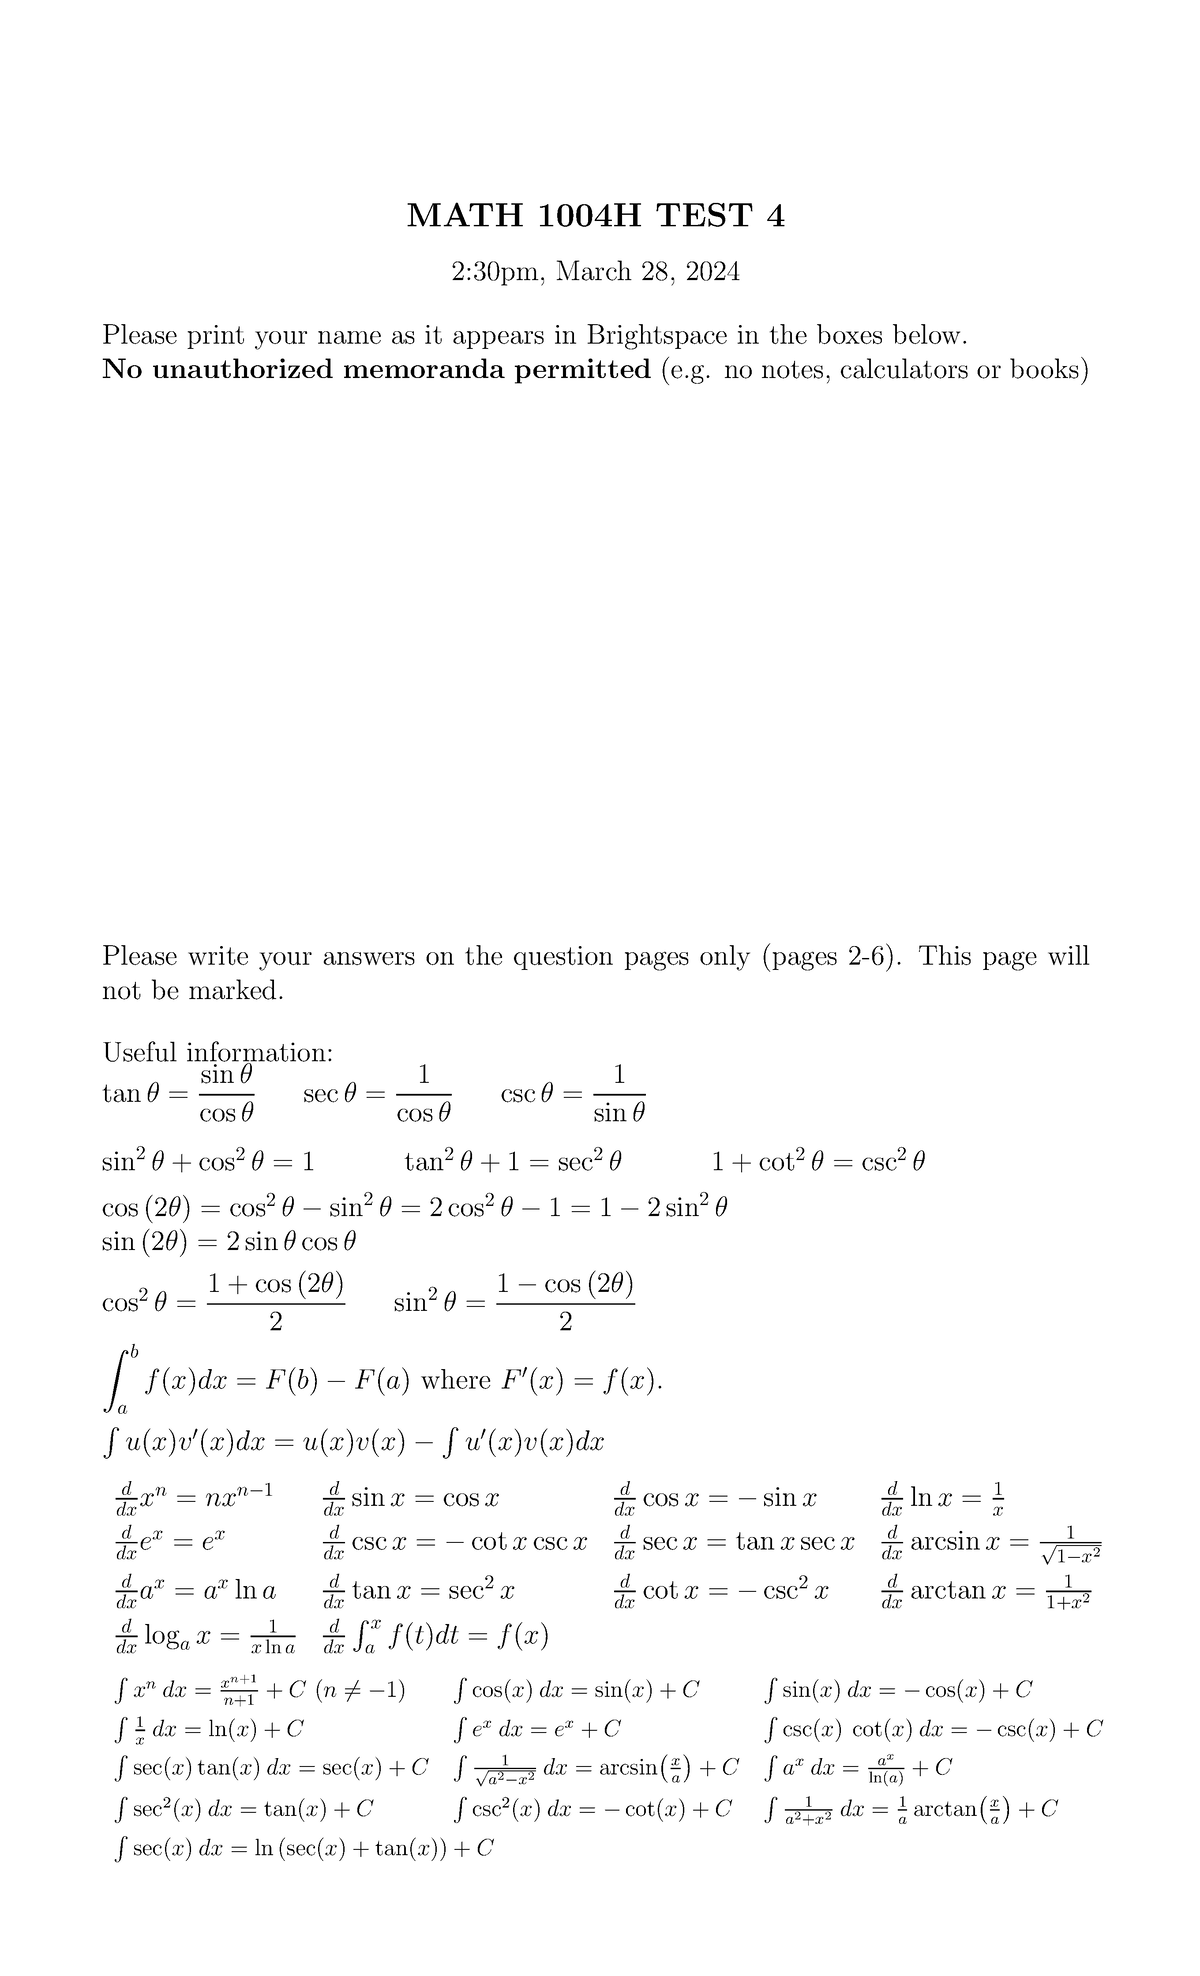 MATH 1004H TEST 4
2:30pm, March 28, 2024
Please print your name as it appears in Brightspace in the boxes below.
No unauthorized memoranda permitted (e.g. no notes, calculators or books)
Please write your answers on the question pages only (pages 2-6). This page will
not be marked.
Useful information:
tan θ = sin θ / cos θ    sec θ = 1 / cos θ    csc θ = 1 / sin θ
sin² θ + cos² θ = 1    tan² θ + 1 = sec² θ    1 + cot² θ = csc² θ
cos (2θ) = cos² θ − sin² θ = 2 cos² θ − 1 = 1 − 2 sin² θ
sin (2θ) = 2 sin θ cos θ
cos² θ = (1 + cos (2θ)) / 2    sin² θ = (1 − cos (2θ)) / 2
∫_a^b f(x)dx = F(b) − F(a) where F′(x) = f(x).
∫ u(x)v′(x)dx = u(x)v(x) − ∫ u′(x)v(x)dx
d/dx xⁿ = nxⁿ⁻¹    d/dx sin x = cos x    d/dx cos x = − sin x    d/dx ln x = 1/x
d/dx eˣ = eˣ    d/dx csc x = − cot x csc x    d/dx sec x = tan x sec x    d/dx arcsin x = 1/√(1−x²)
d/dx aˣ = aˣ ln a    d/dx tan x = sec² x    d/dx cot x = − csc² x    d/dx arctan x = 1/(1+x²)
d/dx log_a x = 1/(x ln a)    d/dx ∫_a^x f(t)dt = f(x)
∫ xⁿ dx = xⁿ⁺¹/(n+1) + C (n ≠ −1)    ∫ cos(x) dx = sin(x) + C    ∫ sin(x) dx = − cos(x) + C
∫ 1/x dx = ln(x) + C    ∫ eˣ dx = eˣ + C    ∫ csc(x) cot(x) dx = − csc(x) + C
∫ sec(x) tan(x) dx = sec(x) + C    ∫ 1/√(a²−x²) dx = arcsin(x/a) + C    ∫ aˣ dx = aˣ/ln(a) + C
∫ sec²(x) dx = tan(x) + C    ∫ csc²(x) dx = − cot(x) + C    ∫ 1/(a²+x²) dx = 1/a arctan(x/a) + C
∫ sec(x) dx = ln (sec(x) + tan(x)) + C